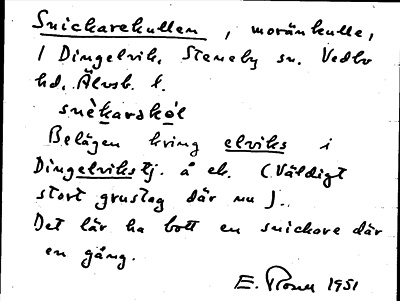 Snickarekullen, moränkulle,
i Dingelvik, Steneby sn. Vedbo
hd, Älvsb. l.
snèkarakól
Belägen kring elviks i
Dingelvikstj. å ek. (Väldigt
stort grustag där nu).
Det lär ha bott en snickare där
en gång.
E. 1951